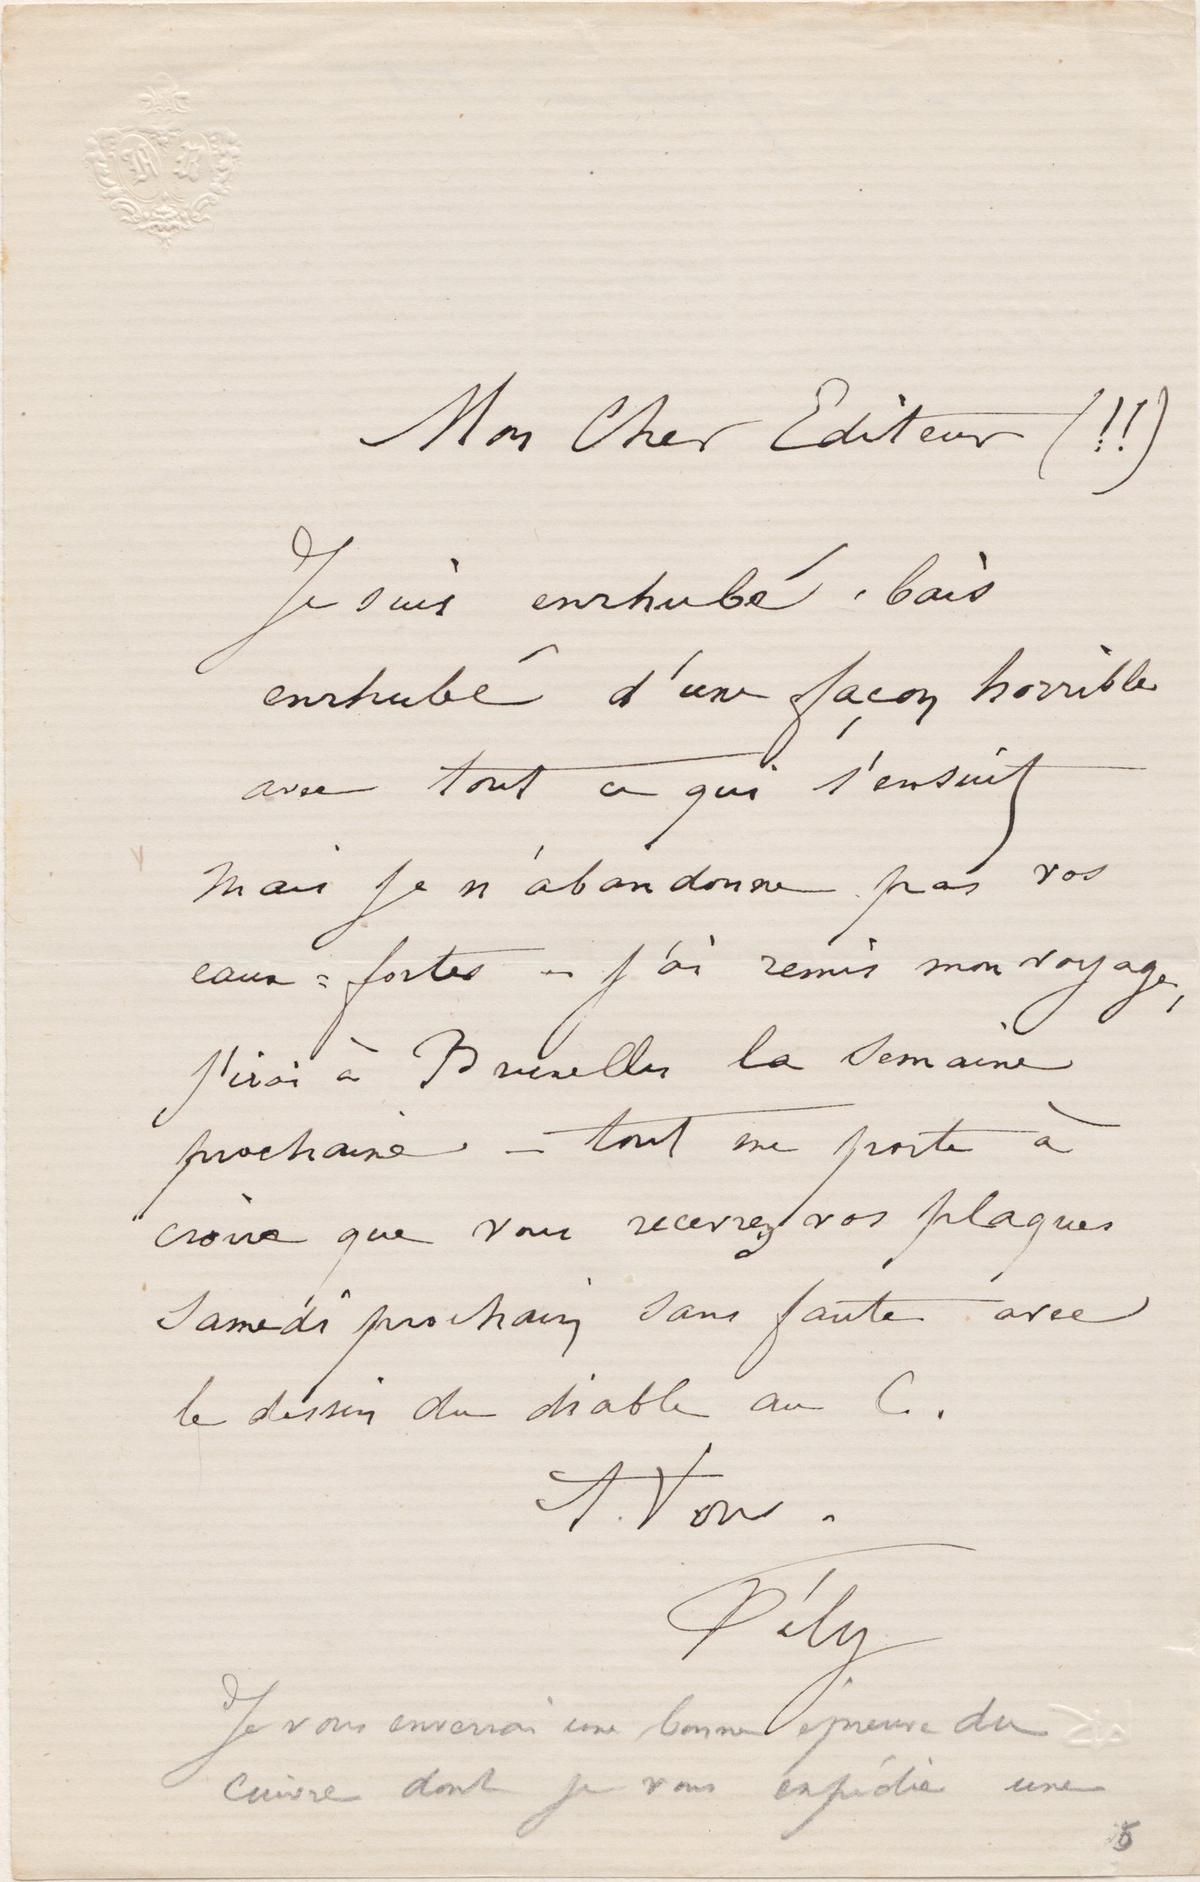 Mon Cher Editeur (!!)
Je suis enrhubé, bais
enrhubé d'une façon horrible
avec tout ce qui s'ensuit
mais je n'abandonne pas vos
eaux=fortes — j'ai remis mon voyage,
j'irai à Bruxelles la semaine
prochaine — tout me porte à
croire que vous recevrez vos plaques
samedi prochain sans faute avec
le dessin du diable au C.
A Vous.
Fély
Je vous enverrai une bonne épreuve du
cuivre dont je vous expédie une
5